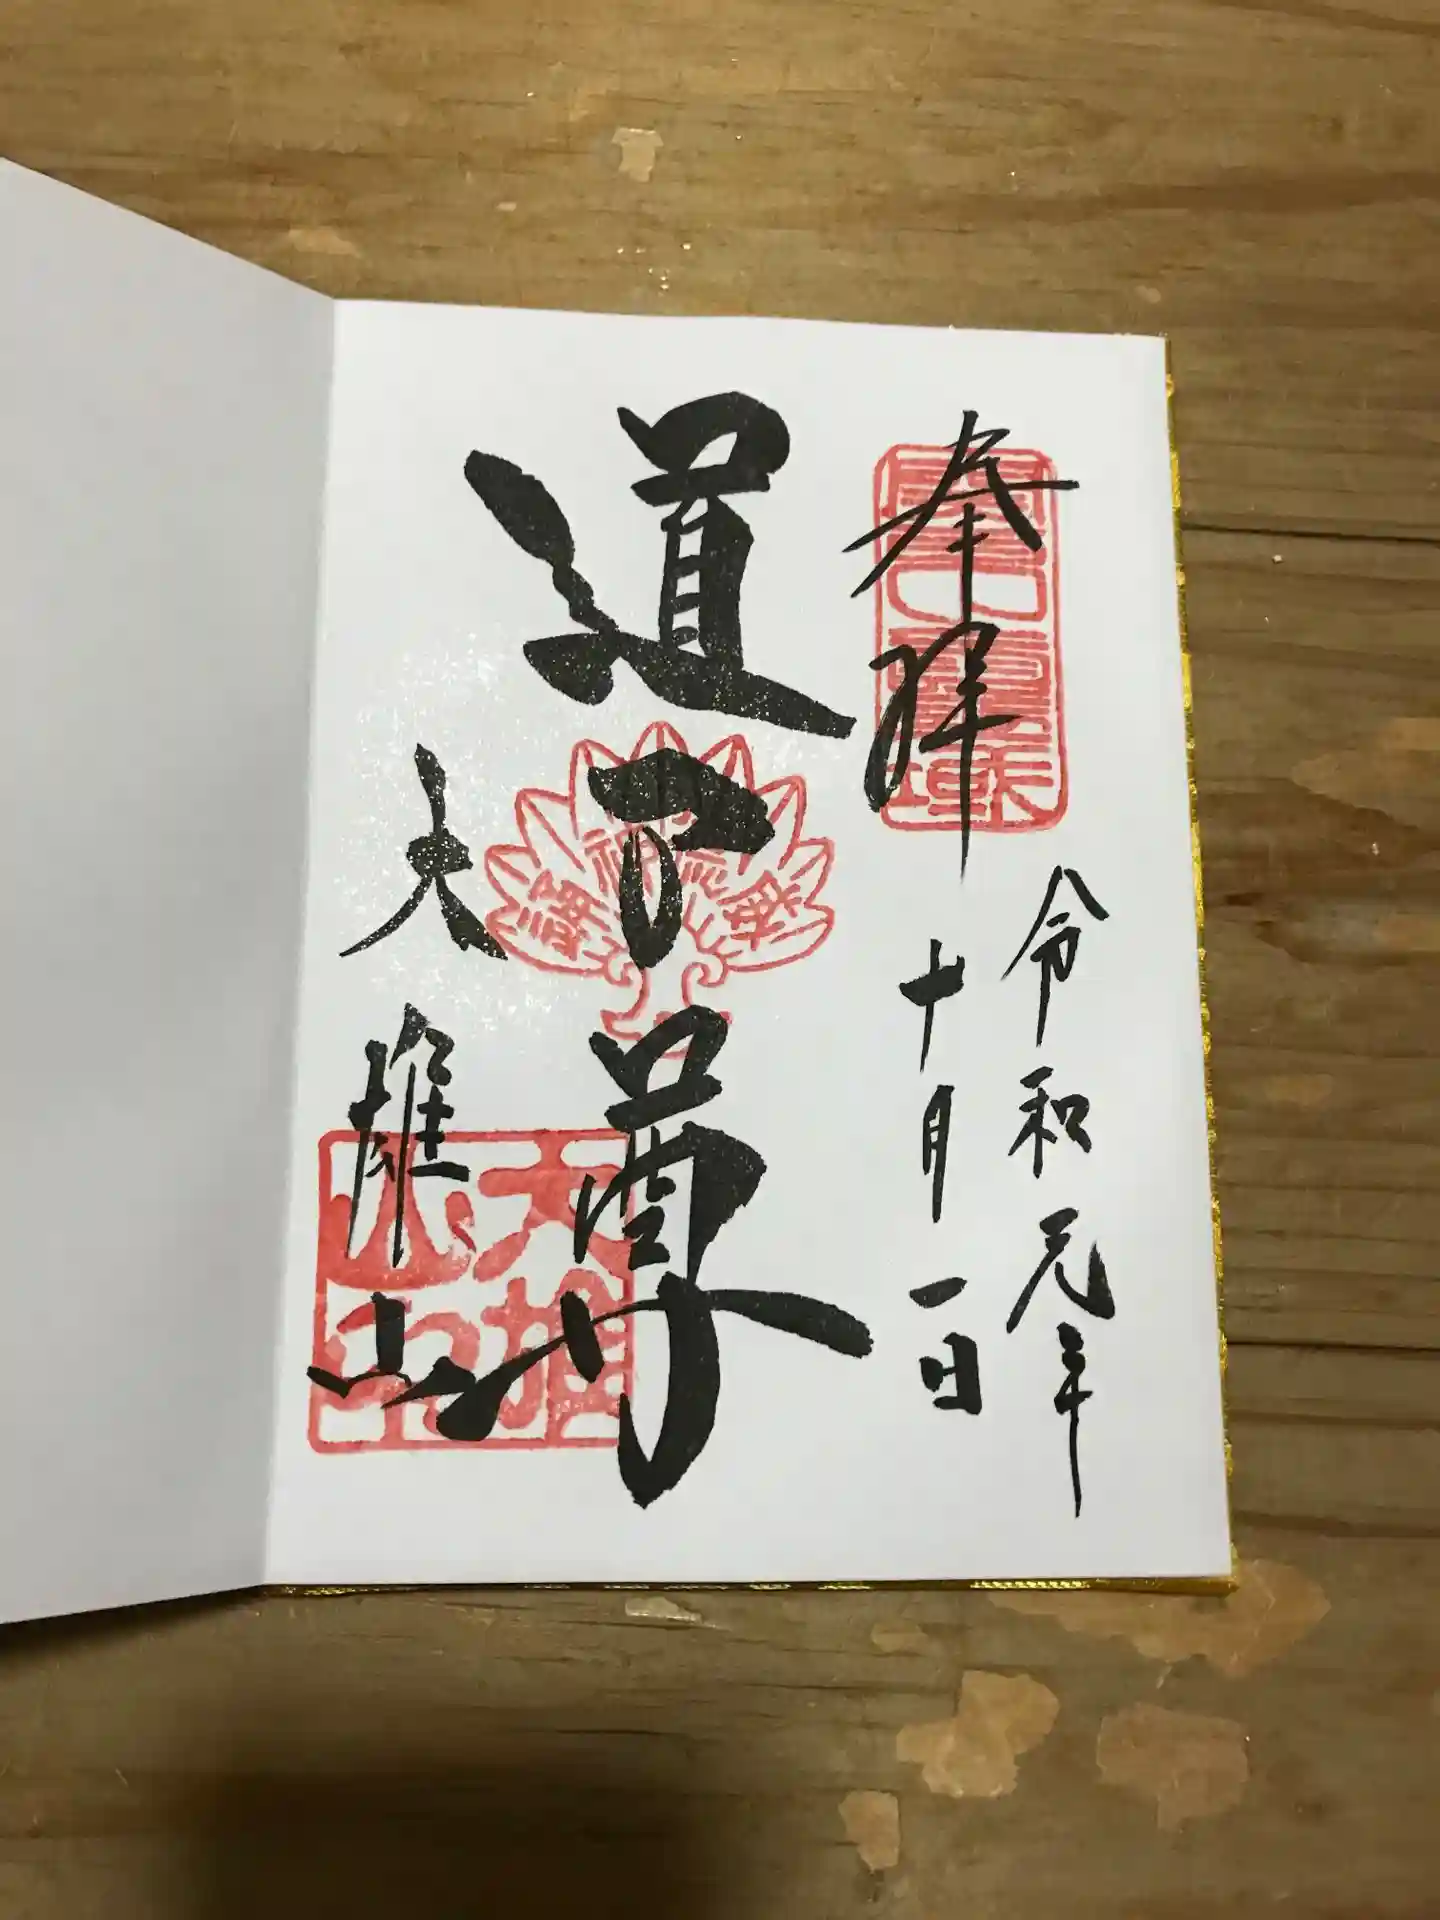 奉拝
令和元年
十月一日
道了尊
大雄山